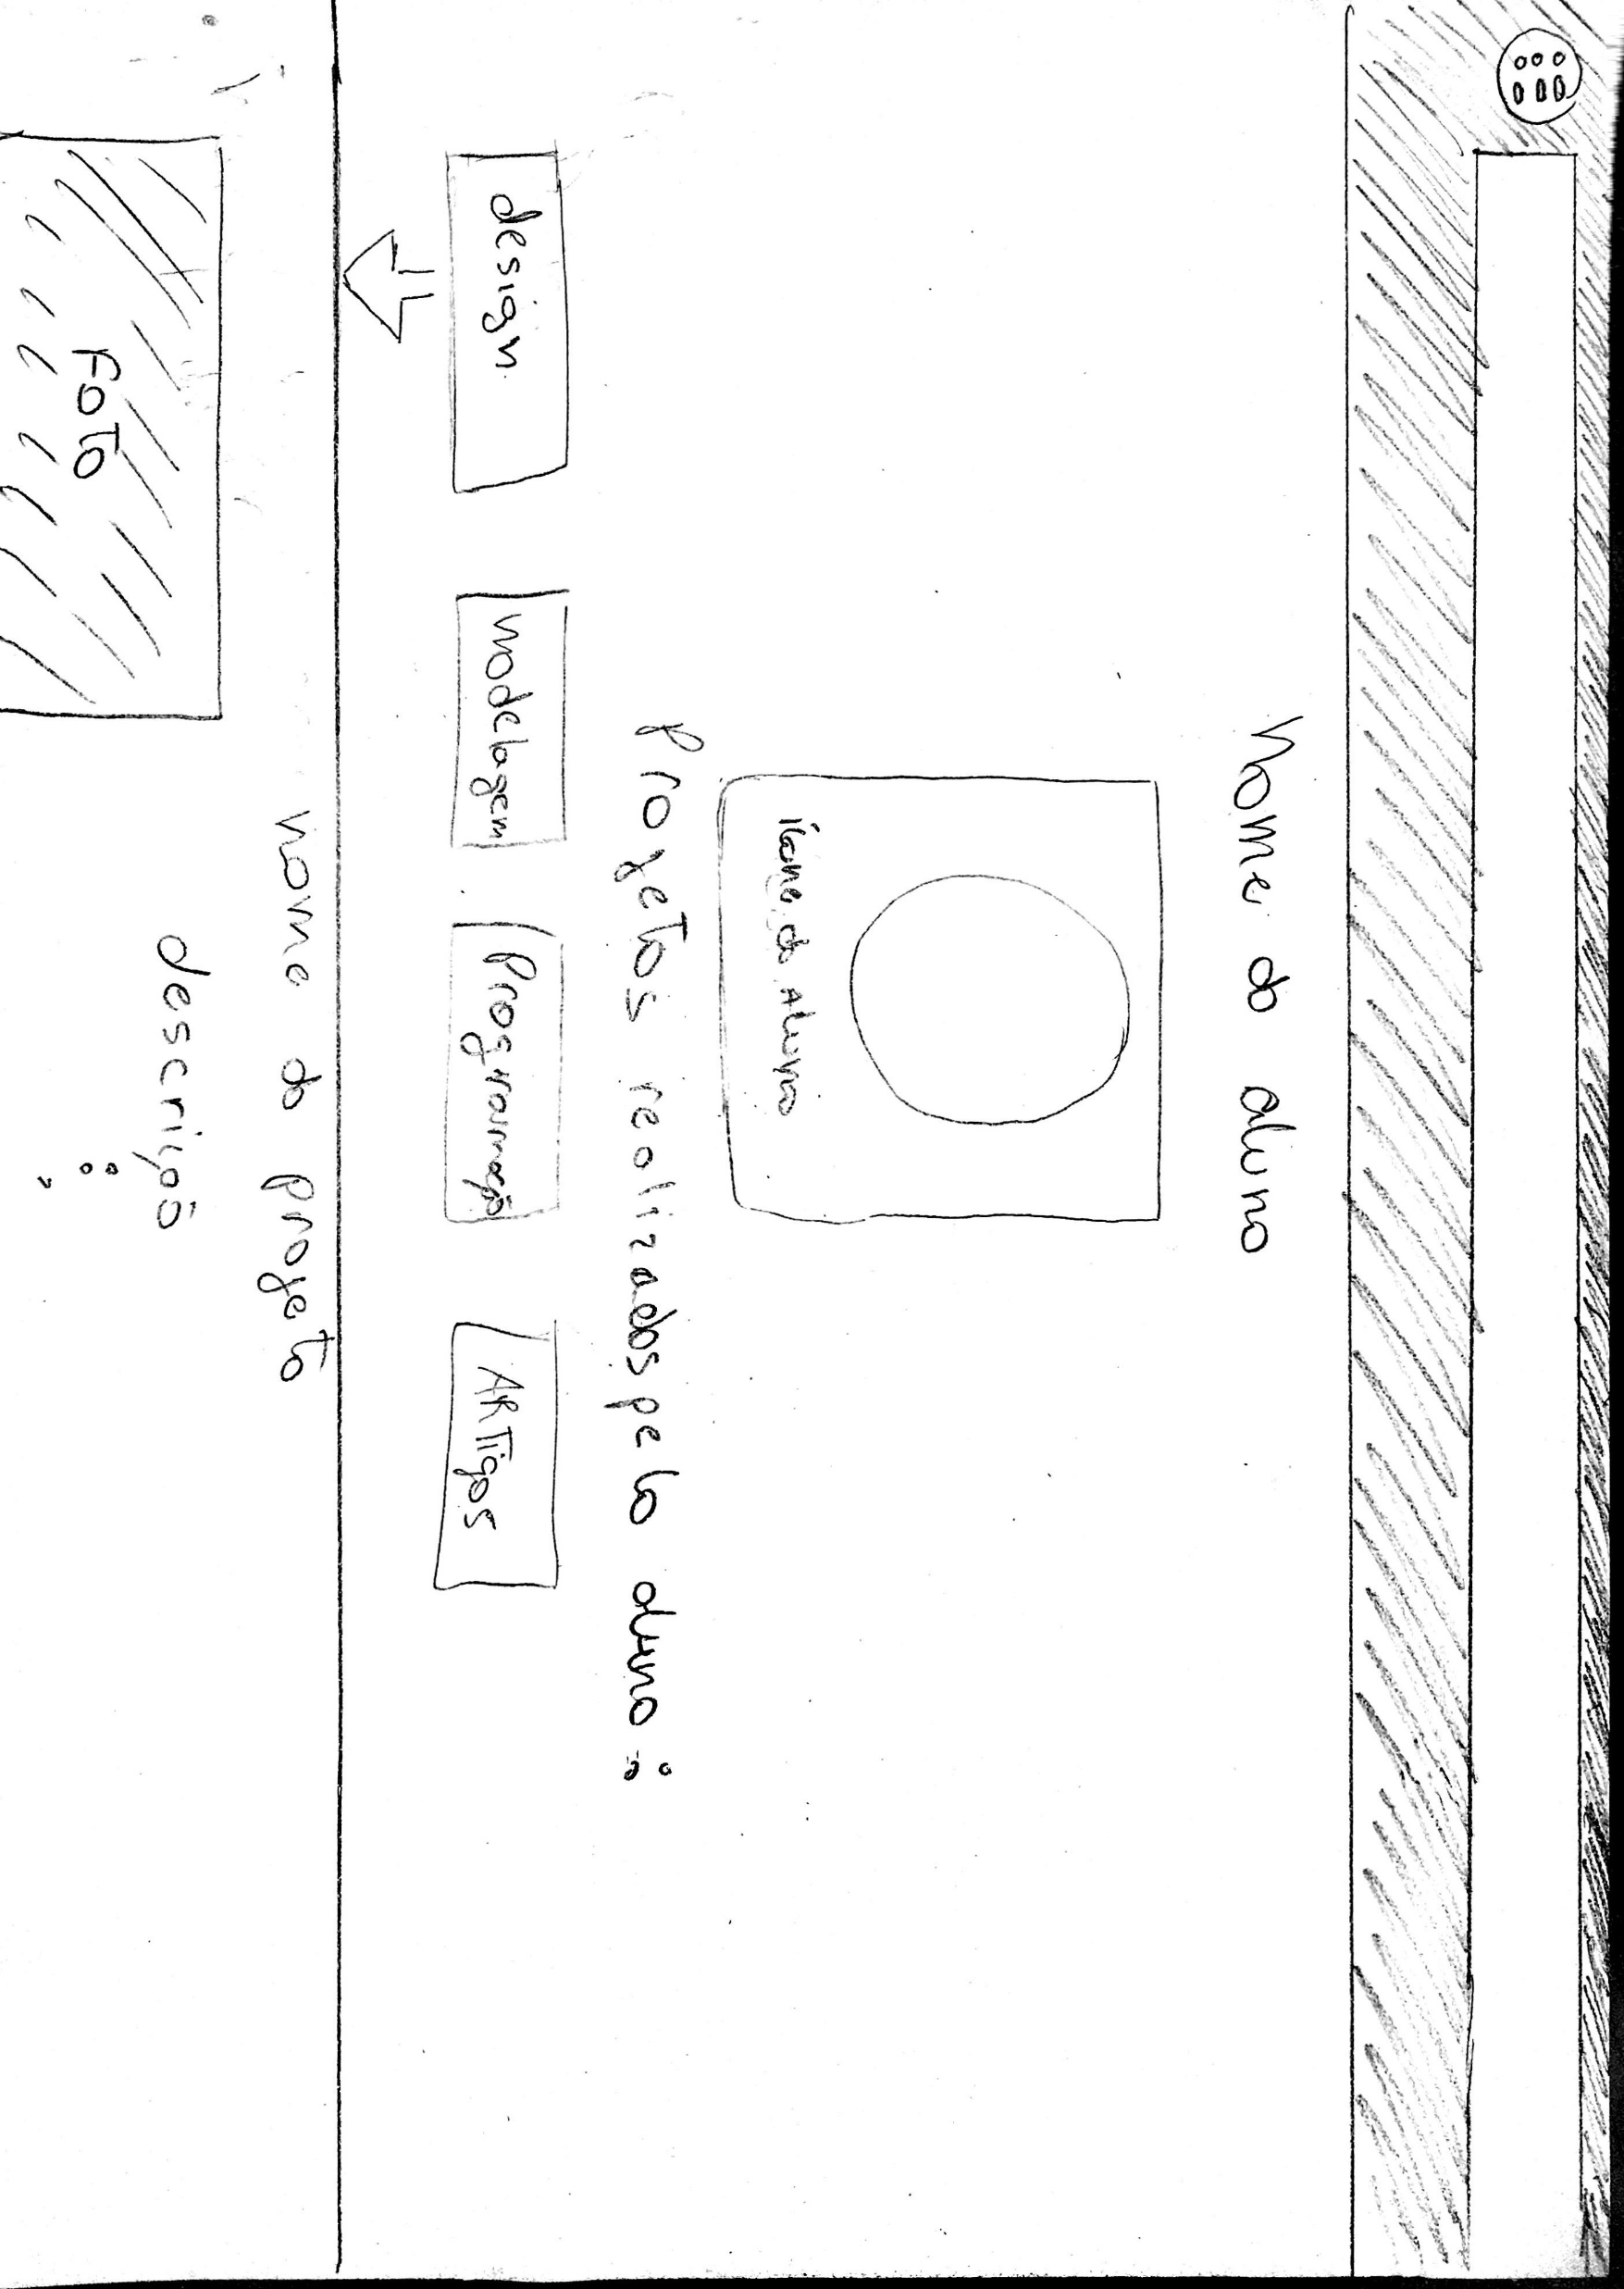 Nome do aluno
ícone do Aluno
Progetos realizados pelo aluno:
design
modelagem
Programação
ARTigos
nome do progeto
FoTo
descrição